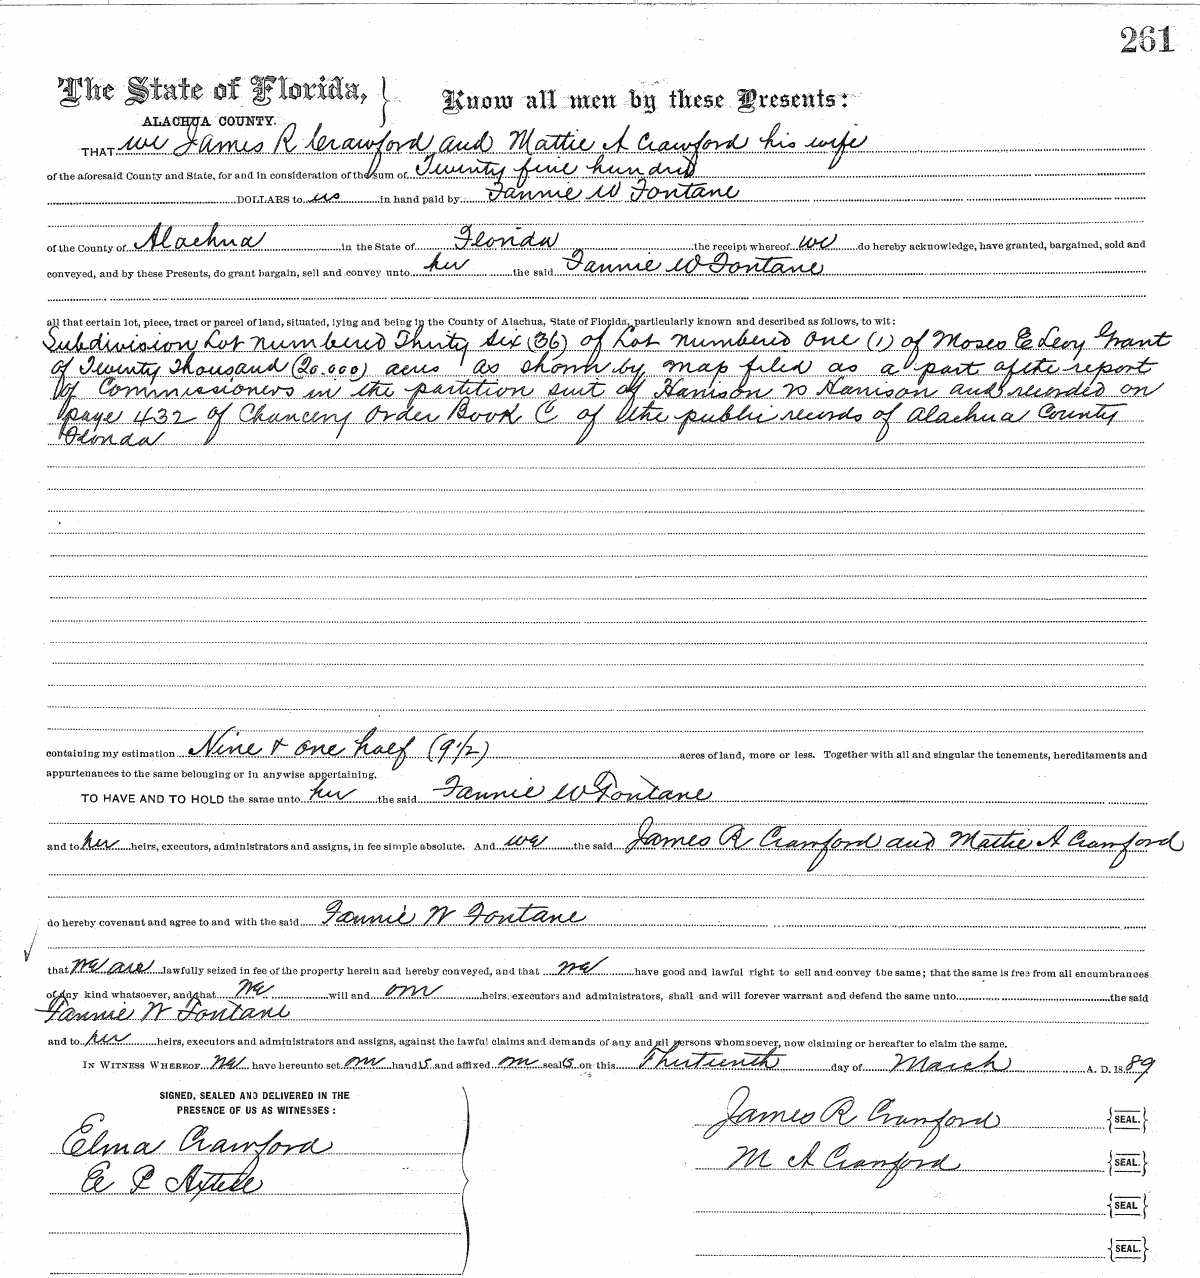 261
The State of Florida,
Know all men by these Presents:
ALACHUA COUNTY.
THAT we James R Crawford and Mattie A Crawford his wife
of the aforesaid County and State, for and in consideration of the sum of Twenty five hundred
DOLLARS to us in hand paid by Fannie W Fontane
of the County of Alachua in the State of Florida the receipt whereof we do hereby acknowledge, have granted, bargained, sold and
conveyed, and by these Presents, do grant bargain, sell and convey unto her the said Fannie W Fontane
all that certain lot, piece, tract or parcel of land, situated, lying and being in the County of Alachua, State of Florida, particularly known and described as follows, to wit:
Subdivision Lot numbered Thirty Six (36) of Lot numbered one (1) of Moses E Levy Grant
of Twenty Thousand (20.000) acres as shown by map filed as a part of the report
of Commissioners in the partition suit of Harrison vs Harrison and recorded on
page 432 of Chancery Order Book C of the public records of Alachua County
Florida
containing my estimation Nine & one half (9 1/2) acres of land, more or less. Together with all and singular the tenements, hereditaments and
appurtenances to the same belonging or in anywise appertaining.
TO HAVE AND TO HOLD the same unto her the said Fannie W Fontane
and to her heirs, executors, administrators and assigns, in fee simple absolute. And we the said James R Crawford and Mattie A Crawford
do hereby covenant and agree to and with the said Fannie W Fontane
that we are lawfully seized in fee of the property herein and hereby conveyed, and that we have good and lawful right to sell and convey the same; that the same is free from all encumbrances
of any kind whatsoever, and that we will and our heirs, executors and administrators, shall and will forever warrant and defend the same unto the said
Fannie W Fontane
and to her heirs, executors and administrators and assigns, against the lawful claims and demands of any and all persons whomsoever, now claiming or hereafter to claim the same.
IN WITNESS WHEREOF we have hereunto set our hands and affixed our seals on this Thirteenth day of March A. D. 1889
SIGNED, SEALED AND DELIVERED IN THE
PRESENCE OF US AS WITNESSES:
James R Crawford SEAL.
Elma Crawford
M A Crawford SEAL.
E P
SEAL
SEAL.